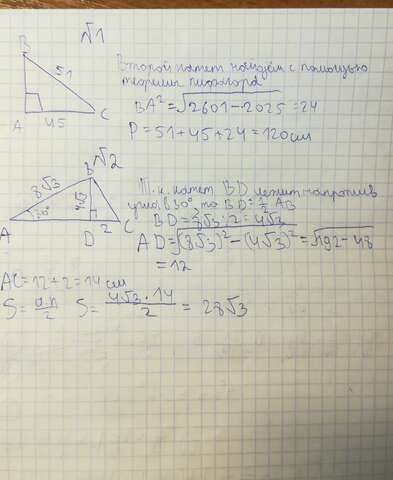 №1
B
51
A 45 C
Второй катет найдём с помощью
теоремы пифагора
BA² = √2601-2025 = 24
P = 51+45+24 = 120 см
№2
B
8√3
30°
A D 2 C
Т.к. катет BD лежит напротив
угла в 30°, то BD = ½ AB
BD = 8√3 : 2 = 4√3
AD = √(8√3)² - (4√3)² = √192-48
= 12
AC = 12+2 = 14 см
S = a·h/2 S = 4√3·14/2 = 28√3